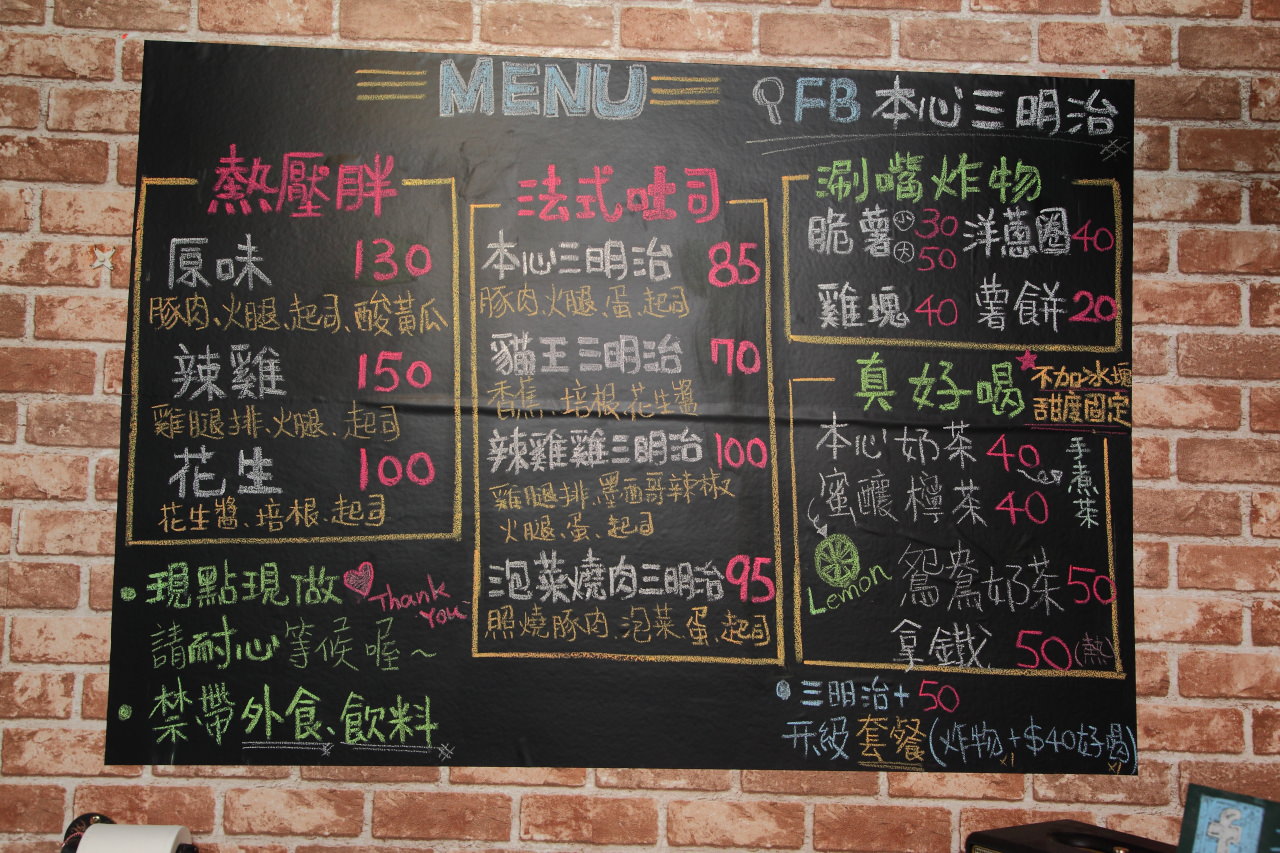 MENU
FB 本心三明治
熱壓胖
原味 130
豚肉、火腿、起司、酸黃瓜
辣雞 150
雞腿排、火腿、起司
花生 100
花生醬、培根、起司
• 現點現做 Thank You
請耐心等候喔~
• 禁帶外食、飲料
法式吐司
本心三明治 85
豚肉、火腿、蛋、起司
貓王三明治 70
香蕉、培根、花生醬
辣雞雞三明治 100
雞腿排、墨西哥辣椒
火腿、蛋、起司
泡菜燒肉三明治 95
照燒豚肉、泡菜、蛋、起司
涮嘴炸物
脆薯 小 30 大 50 洋蔥圈 40
雞塊 40 薯餅 20
真好喝
不加冰塊
甜度固定
本心奶茶 40
手煮茶
蜜釀檸茶 40
Lemon
鴛鴦奶茶 50
拿鐵 50 (熱)
• 三明治+50
升級套餐(炸物x1+$40好喝x1)
f